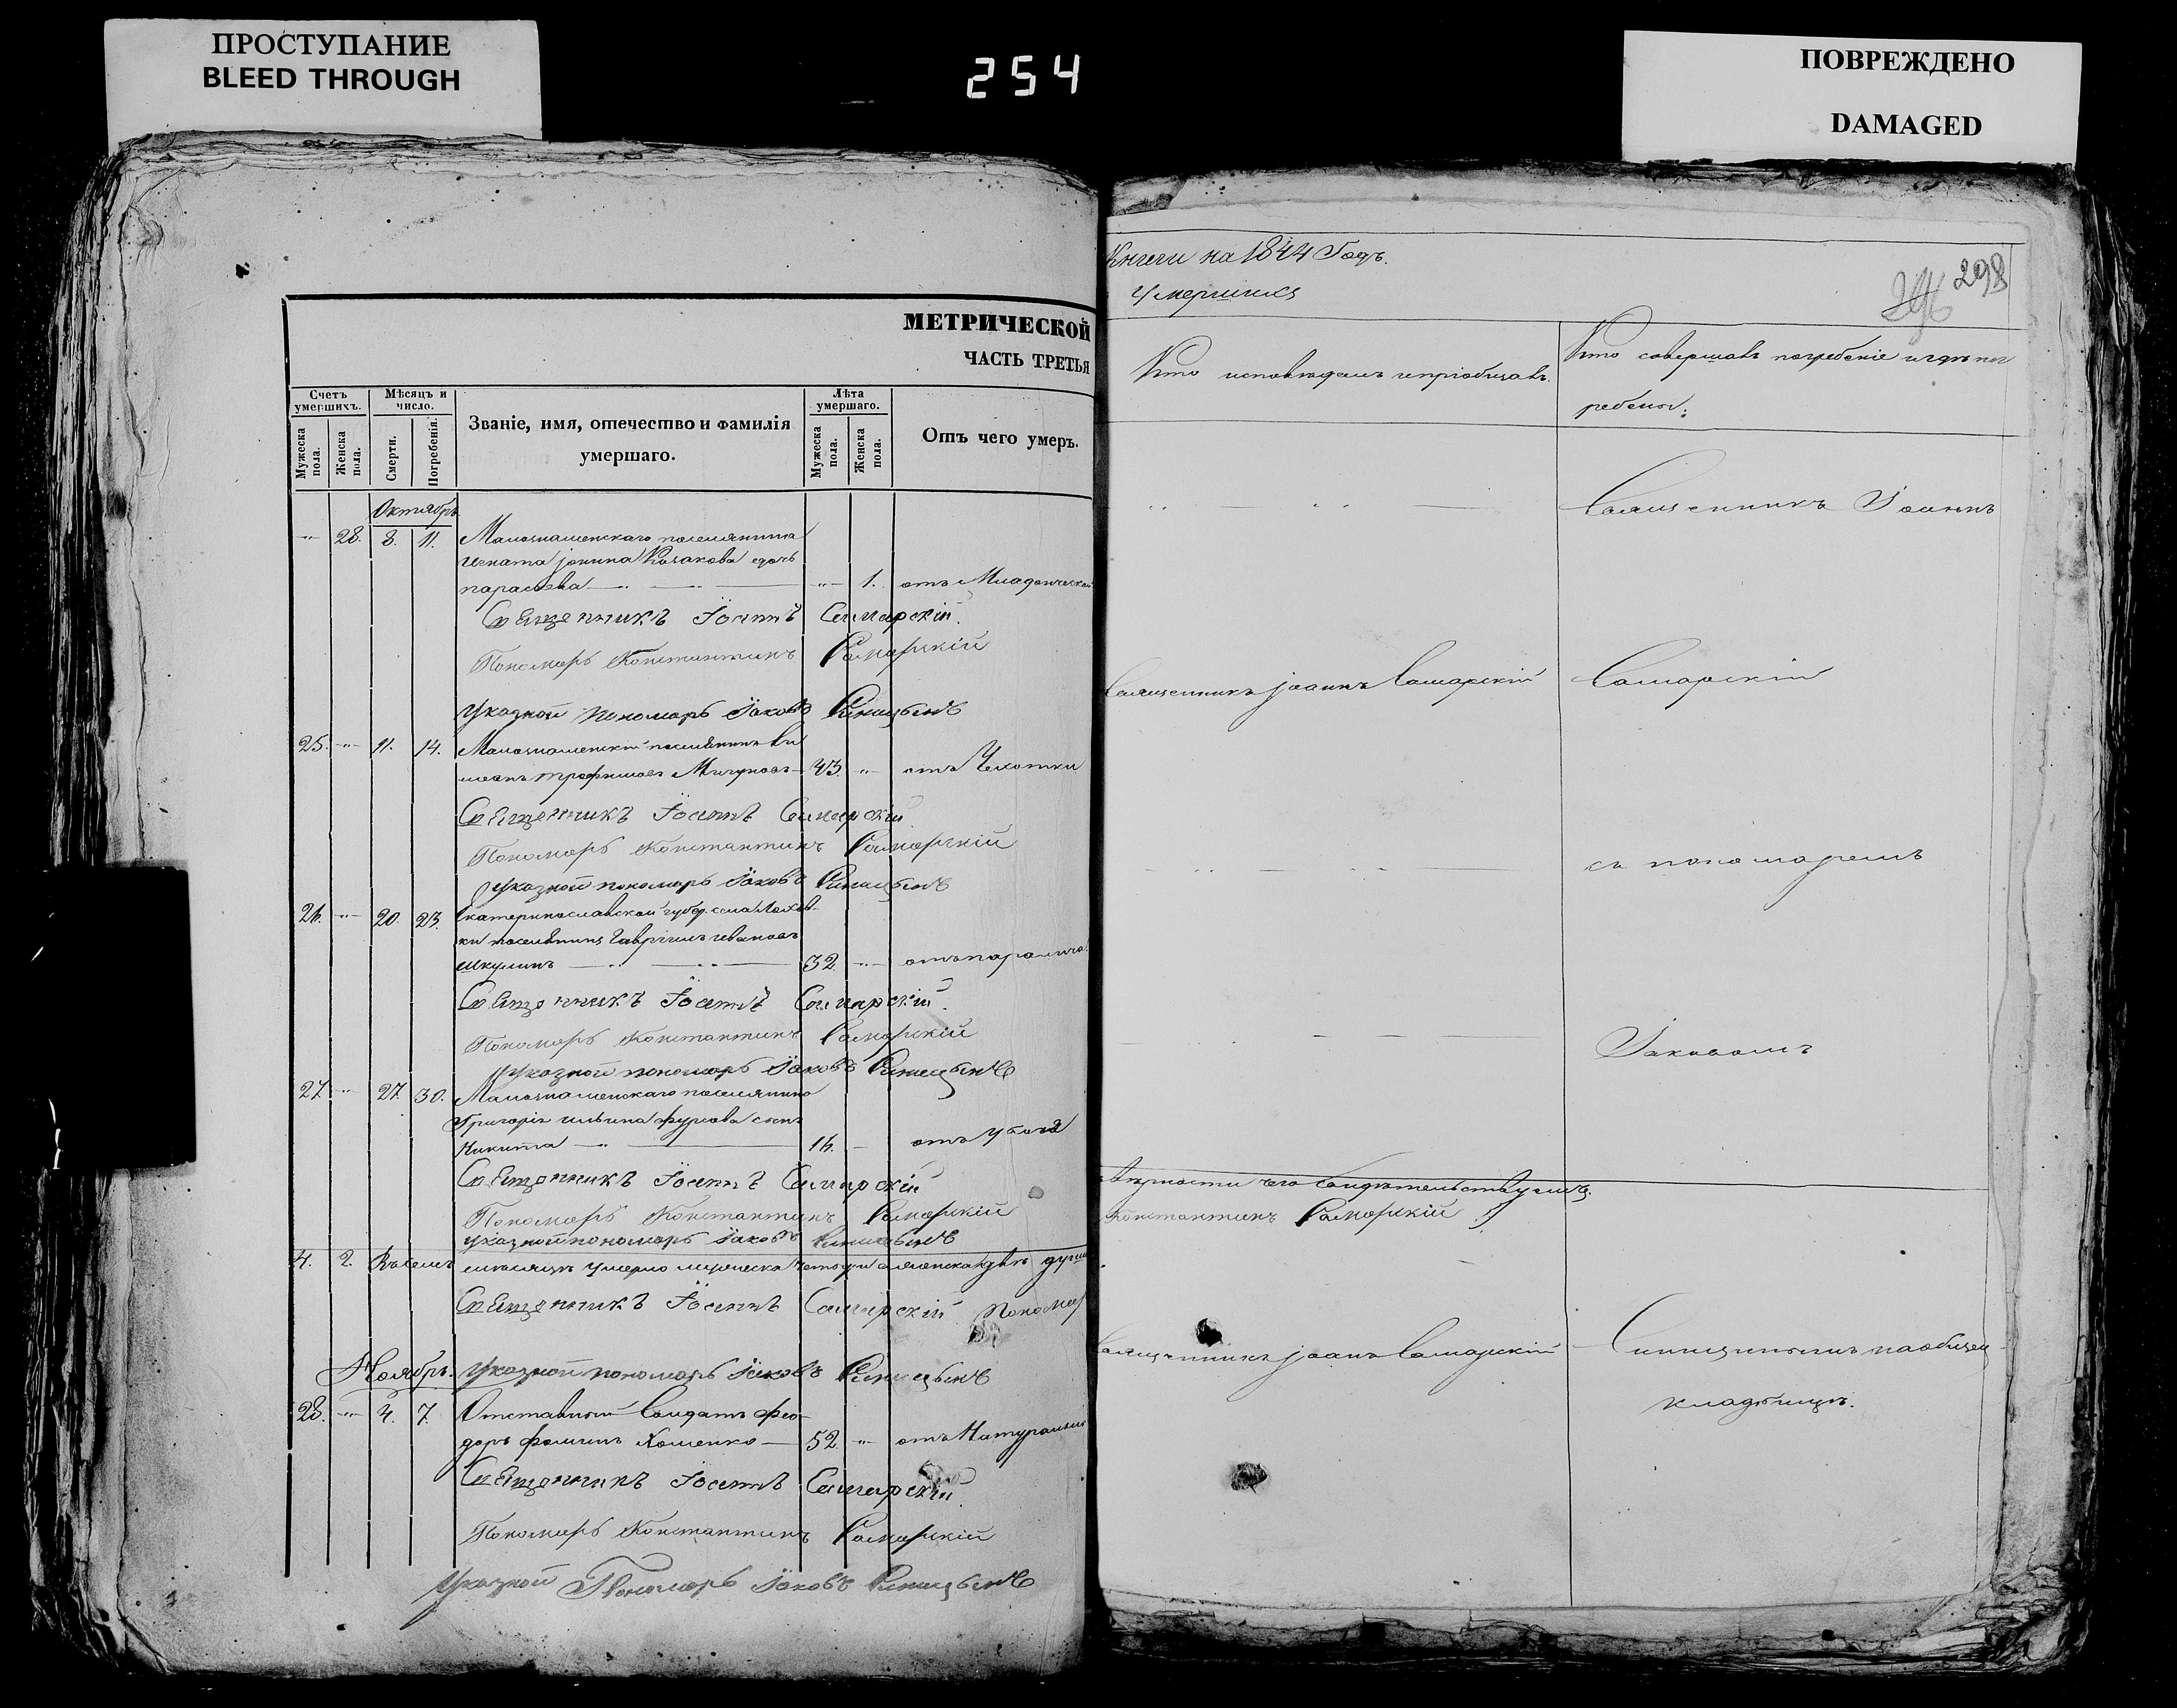 ПРОСТУПАНИЕ
BLEED THROUGH
254
ПОВРЕЖДЕНО
DAMAGED
МЕТРИЧЕСКОЙ
ЧАСТЬ ТРЕТЬЯ
Счетъ умершихъ.
Мѣсяцъ и число.
Званіе, имя, отечество и фамилія умершаго.
Лѣта умершаго.
Отъ чего умеръ.
Мужеска пола.
Женска пола.
Смерти.
Погребенія.
Мужеска пола.
Женска пола.
Октябрь
28. 8. 11. Малознаменскаго поселянина
Игната Козакова дочь
параскева 1. отъ Младенческой
Священникъ Іоаннъ Самарскій.
Пономарь Константинъ Самарскій
Указной пономарь Іаковъ Синицынъ
25. 11. 14. Малознаменскій поселянинъ
Трофимовъ Мигуновъ 43. отъ Чахотки
Священникъ Іоаннъ Самарскій
Пономарь Константинъ Самарскій
Указной пономарь Іаковъ Синицынъ
26. 20. 23. Екатеринославской губер. села
ки поселянинъ Гавріилъ Ивановъ
Шкулинъ 32. отъ паралича
Священникъ Іоаннъ Самарскій.
Пономарь Константинъ Самарскій
Указной пономарь Іаковъ Синицынъ
27. 27. 30. Малознаменскаго поселянина
Григорія Ильина сынъ
Никита 16. отъ
Священникъ Іоаннъ Самарскій
Пономарь Константинъ Самарскій
Указной пономарь Іаковъ Синицынъ
4. 2. Въ семъ мѣсяцѣ умерло мужеска четыри а женска двѣ души
Священникъ Іоаннъ Самарскій Пономар
Ноябрь. Указной пономарь Іаковъ Синицынъ
28. 4. 7. Отставный Солдатъ Фео-
доръ Фоминъ Хоменко 52. отъ Натуральной
Священникъ Іоаннъ Самарскій.
Пономарь Константинъ Самарскій
Указной Пономарь Іаковъ Синицынъ
Книги на 1844 Годъ.
298
Умершихъ
Кто исповѣдалъ и пріобщалъ.
Кто совершалъ погребеніе и гдѣ пог
ребены.
Священникъ Іоаннъ
Священникъ Іоаннъ Самарскій
Самарскій
съ пономаремъ
Іаковомъ
вѣрности чего Свидѣтельствуемъ.
Константинъ Самарскій
Священникъ Іоаннъ Самарскій
Синицынымъ на общем
кладбищѣ.